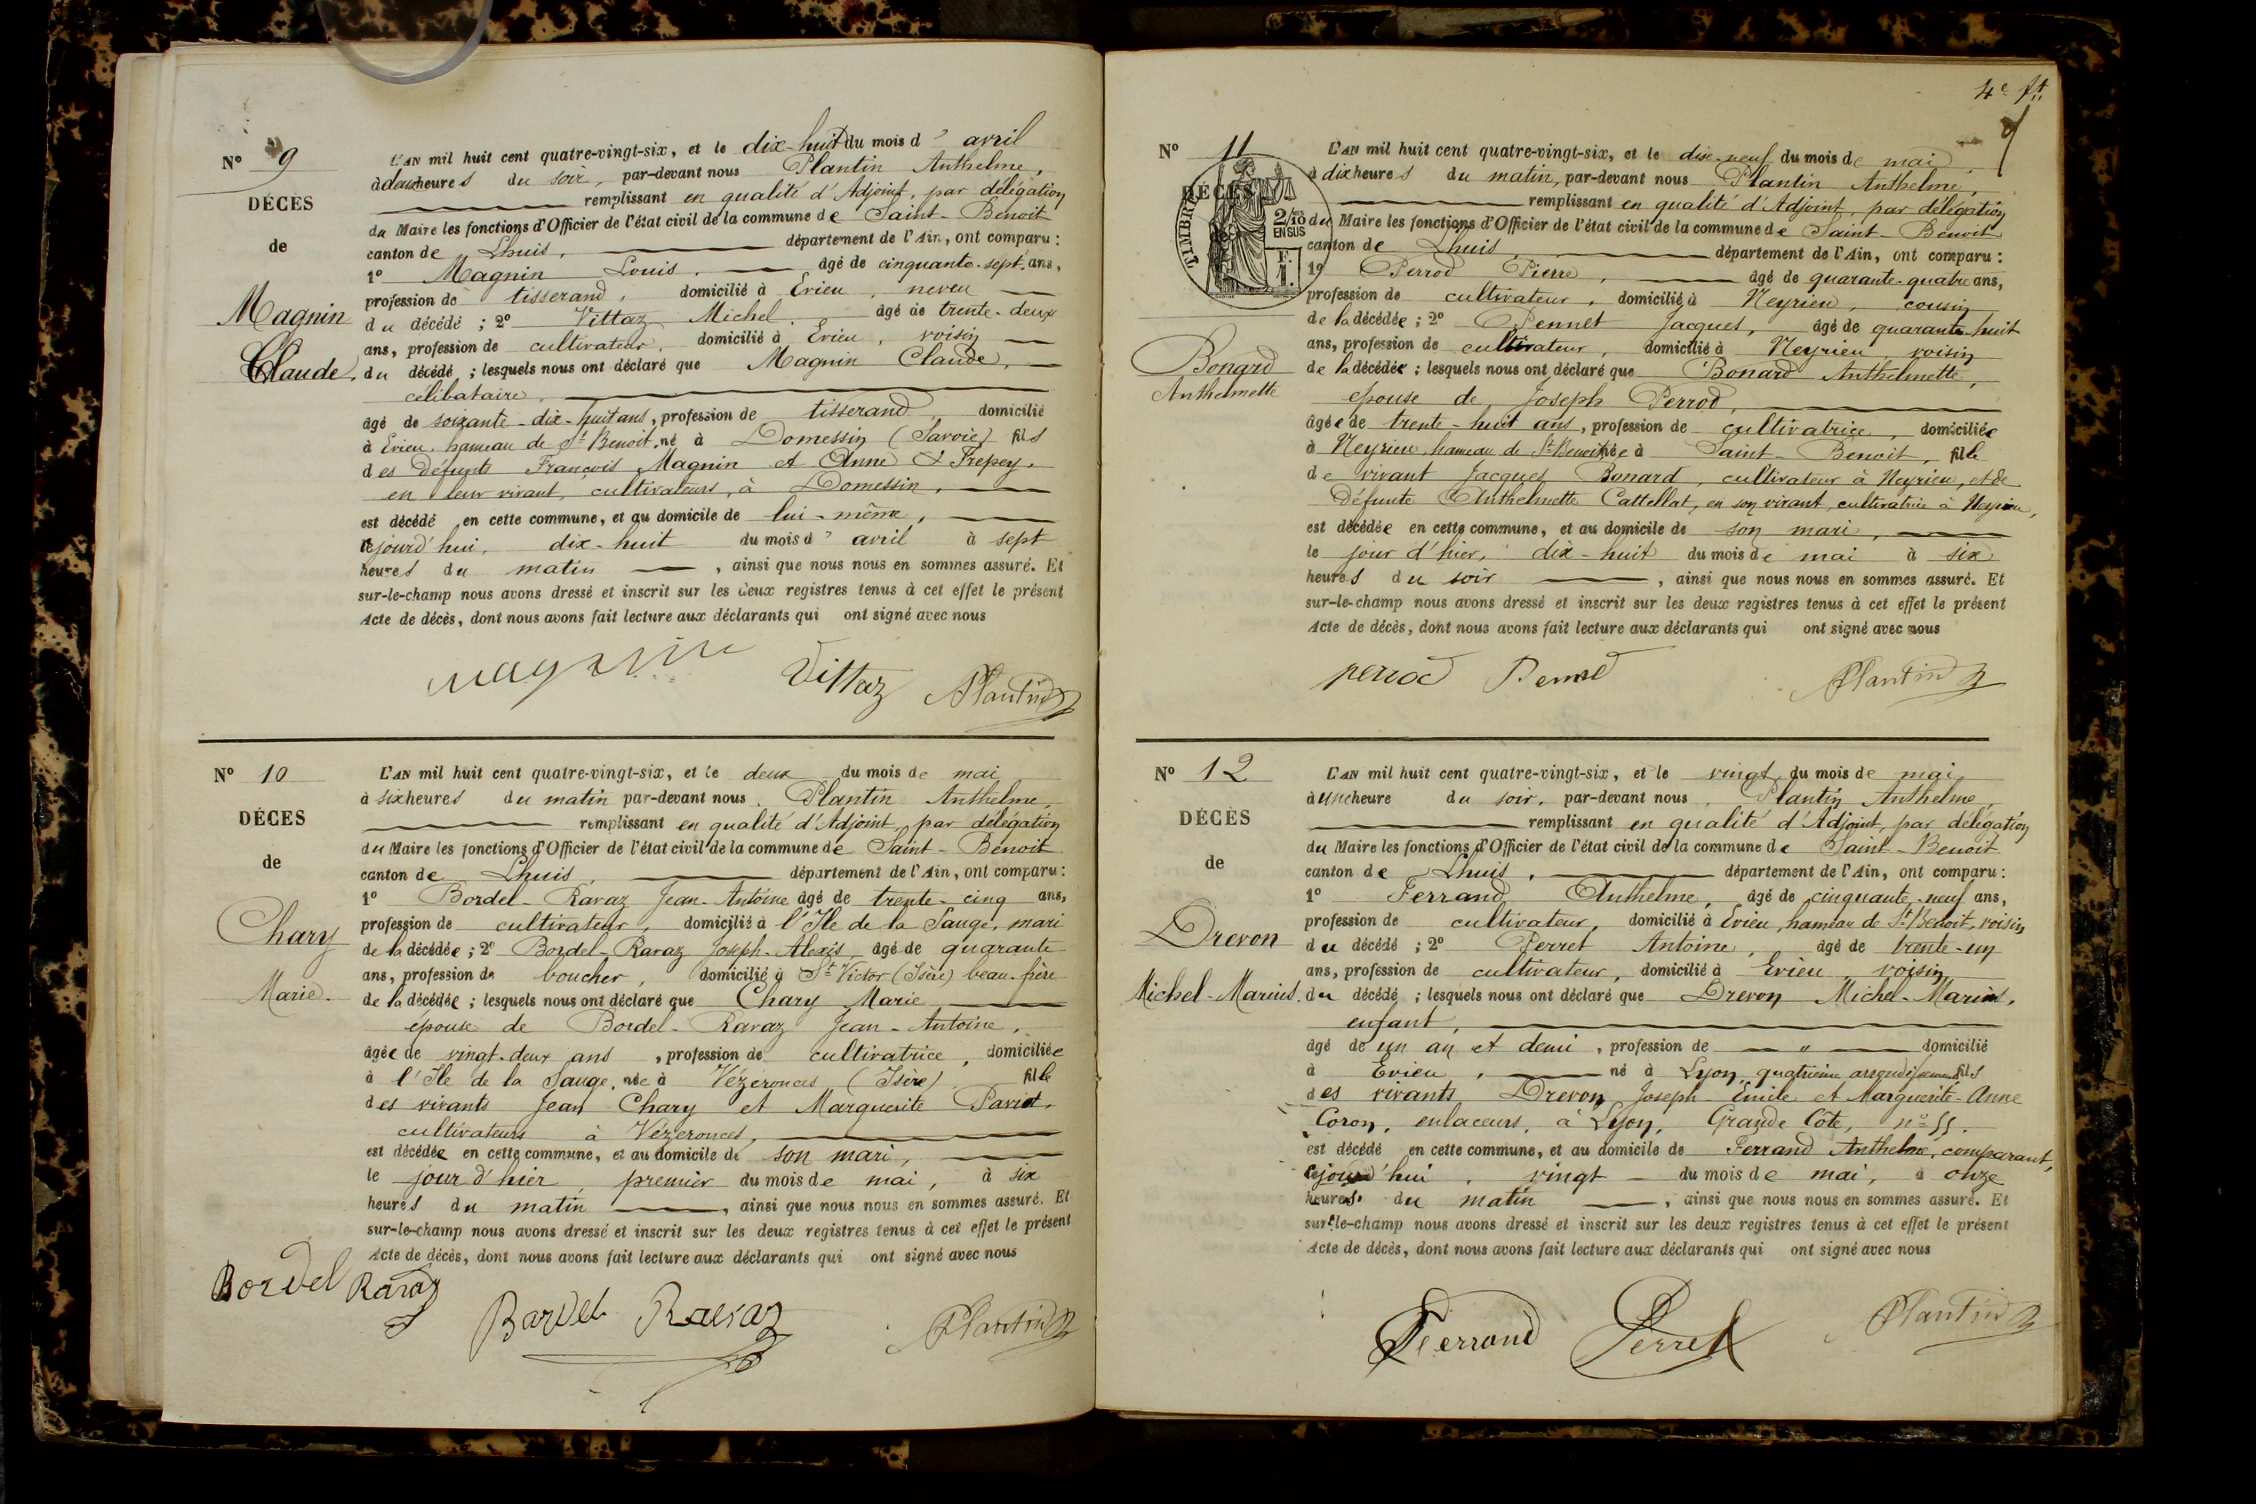 Nº 9
DÉCES
de
Magnin
Claude.
L'AN mil huit cent quatre-vingt-six, et le dix-huit du mois d' avril
à deux heures du soir, par-devant nous Plantin Anthelme,
remplissant en qualité d'Adjoint, par délégation
du Maire les fonctions d'Officier de l'état civil de la commune de Saint-Benoit
canton de Lhuis, département de l'Ain, ont comparu :
1º Magnin Louis, âgé de cinquante-sept ans,
profession de tisserand, domicilié à Evieu, neveu
du décédé ; 2º Vittaz Michel, âgé de trente-deux
ans, profession de cultivateur, domicilié à Evieu, voisin
du décédé ; lesquels nous ont déclaré que Magnin Claude,
célibataire,
âgé de soixante-dix-huit ans, profession de tisserand, domicilié
à Evieu, hameau de St Benoit, né à Domessin (Savoie) fils
des défunts François Magnin et Anne Frepey,
en leur vivant, cultivateurs, à Domessin,
est décédé en cette commune, et au domicile de lui-même,
cejourd'hui, dix-huit du mois d' avril à sept
heures du matin, ainsi que nous nous en sommes assuré. Et
sur-le-champ nous avons dressé et inscrit sur les deux registres tenus à cet effet le présent
Acte de décès, dont nous avons fait lecture aux déclarants qui ont signé avec nous
magnin Vittaz APlantin
Nº 10
DÉCES
de
Chary
Marie.
L'AN mil huit cent quatre-vingt-six, et le deux du mois de mai
à six heures du matin par-devant nous Plantin Anthelme,
remplissant en qualité d'Adjoint, par délégation
du Maire les fonctions d'Officier de l'état civil de la commune de Saint-Benoit
canton de Lhuis, département de l'Ain, ont comparu :
1º Bordel-Ravaz Jean-Antoine âgé de trente-cinq ans,
profession de cultivateur, domicilié à l'Ile de la Sauge, mari
de la décédée ; 2º Bordel-Ravaz Joseph-Alexis, âgé de quarante
ans, profession de boucher, domicilié à St Victor (Isère) beau-frère
de la décédée ; lesquels nous ont déclaré que Chary Marie
épouse de Bordel-Ravaz Jean-Antoine,
âgée de vingt-deux ans, profession de cultivatrice, domiciliée
à l'Ile de la Sauge, née à Vézeronces (Isère) fille
des vivants Jean Chary et Marguerite Paviot,
cultivateurs à Vézeronces,
est décédée en cette commune, et au domicile de son mari,
le jour d'hier, premier du mois de mai, à six
heures du matin, ainsi que nous nous en sommes assuré. Et
sur-le-champ nous avons dressé et inscrit sur les deux registres tenus à cet effet le présent
Acte de décès, dont nous avons fait lecture aux déclarants qui ont signé avec nous
Bordel Ravaz Bardel Ravaz APlantin
4e
Nº 11
DÉCES
TIMBRE
2/10 EN SUS
F. 1.
Bonard
Anthelmette
L'AN mil huit cent quatre-vingt-six, et le dix-neuf du mois de mai
à dix heures du matin, par-devant nous Plantin Anthelme,
remplissant en qualité d'Adjoint, par délégation
du Maire les fonctions d'Officier de l'état civil de la commune de Saint-Benoit
canton de Lhuis, département de l'Ain, ont comparu :
1º Perrod Pierre, âgé de quarante-quatre ans,
profession de cultivateur, domicilié à Neyrieu, cousin
de la décédée ; 2º Pennet Jacques, âgé de quarante-huit
ans, profession de cultivateur, domicilié à Neyrieu voisin
de la décédée ; lesquels nous ont déclaré que Bonard Anthelmette,
épouse de Joseph Perrod,
âgée de trente-huit ans, profession de cultivatrice, domiciliée
à Neyrieu, hameau de St-Benoit née à Saint-Benoit, fille
de vivant Jacques Bonard, cultivateur à Neyrieu, et de
défunte Anthelmette Cattellat, en son vivant, cultivatrice à Neyrieu,
est décédée en cette commune, et au domicile de son mari,
le jour d'hier, dix-huit du mois de mai à six
heures du soir, ainsi que nous nous en sommes assuré. Et
sur-le-champ nous avons dressé et inscrit sur les deux registres tenus à cet effet le présent
Acte de décès, dont nous avons fait lecture aux déclarants qui ont signé avec nous
perrod Pennet APlantin
Nº 12
DÉCÈS
de
Drevon
Michel-Marius.
L'AN mil huit cent quatre-vingt-six, et le vingt du mois de mai,
à une heure du soir, par-devant nous, Plantin Anthelme,
remplissant en qualité d'Adjoint, par délégation
du Maire les fonctions d'Officier de l'état civil de la commune de Saint-Benoit
canton de Lhuis, département de l'Ain, ont comparu :
1º Ferrand Anthelme, âgé de cinquante-neuf ans,
profession de cultivateur, domicilié à Evieu, hameau de St-Benoit, voisin
du décédé ; 2º Perret Antoine, âgé de trente-un
ans, profession de cultivateur, domicilié à Evieu, voisin
du décédé ; lesquels nous ont déclaré que Drevon Michel-Marius,
enfant,
âgé de un an et demi, profession de — " — domicilié
à Evieu, né à Lyon, quatrième arrondissement fils
des vivants Drevon Joseph-Emile et Marguerite-Anne
Coron, enlaceurs, à Lyon, Grande Côte, nº 55.
est décédé en cette commune, et au domicile de Ferrand Anthelme, comparant,
cejourd'hui, vingt du mois de mai, à onze
heures du matin, ainsi que nous nous en sommes assuré. Et
sur-le-champ nous avons dressé et inscrit sur les deux registres tenus à cet effet le présent
Acte de décès, dont nous avons fait lecture aux déclarants qui ont signé avec nous
Ferrand Perret APlantin